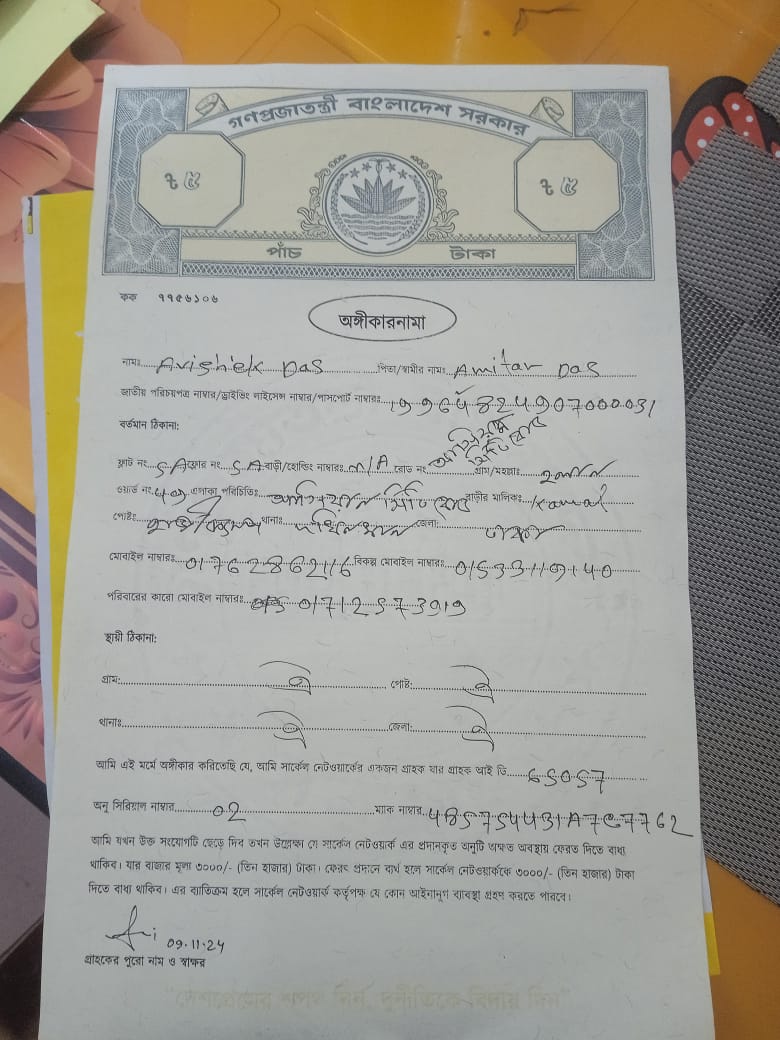 গণপ্রজাতন্ত্রী বাংলাদেশ সরকার
৳ ৫ ৳ ৫
পাঁচ টাকা
কক ৭৭৫৬১০৬
অঙ্গীকারনামা
নামঃ Avishek Das পিতা/স্বামীর নামঃ Amitav Das
জাতীয় পরিচয়পত্র নাম্বার/ড্রাইভিং লাইসেন্স নাম্বার/পাসপোর্ট নাম্বারঃ
বর্তমান ঠিকানা:
ফ্লাট নং 5A ফ্লোর নং 5A বাড়ী/হোল্ডিং নাম্বারঃ N/A রোড নং গ্রাম/মহল্লাঃ
ওয়ার্ড নং এলাকা পরিচিতিঃ বাড়ীর মালিকঃ Kamal
পোষ্টঃ থানাঃ জেলা: ঢাকা
মোবাইল নাম্বারঃ 01762862116 বিকল্প মোবাইল নাম্বারঃ 01533119140
পরিবারের কারো মোবাইল নাম্বারঃ 01712573919
স্থায়ী ঠিকানা:
গ্রাম: ঐ পোষ্ট: ঐ
থানাঃ ঐ জেলা: ঐ
আমি এই মর্মে অঙ্গীকার করিতেছি যে, আমি সার্কেল নেটওয়ার্কের একজন গ্রাহক যার গ্রাহক আই ডি 65057
অনু সিরিয়াল নাম্বার 02 ম্যাক নাম্বার
আমি যখন উক্ত সংযোগটি ছেড়ে দিব তখন উল্লেক্ষ্য যে সার্কেল নেটওয়ার্ক এর প্রদানকৃত অনুটি অক্ষত অবস্থায় ফেরত দিতে বাধ্য
থাকিব। যার বাজার মূল্য ৩০০০/- (তিন হাজার) টাকা। ফেরৎ প্রদানে ব্যর্থ হলে সার্কেল নেটওয়ার্ককে ৩০০০/- (তিন হাজার) টাকা
দিতে বাধ্য থাকিব। এর ব্যতিক্রম হলে সার্কেল নেটওয়ার্ক কর্তৃপক্ষ যে কোন আইনানুগ ব্যবস্থা গ্রহণ করতে পারবে।
09.11.24
গ্রাহকের পুরো নাম ও স্বাক্ষর
"দেশপ্রেমের শপথ নিন, দুর্নীতিকে বিদায় দিন"